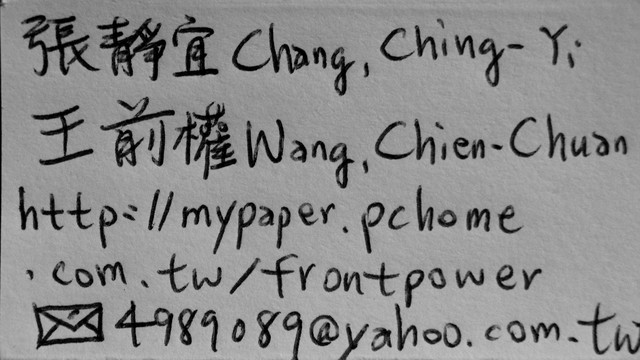 張靜宜 Chang, Ching-Yi
王前權 Wang, Chien-Chuan
http://mypaper.pchome
.com.tw/frontpower
✉4989089@yahoo.com.tw